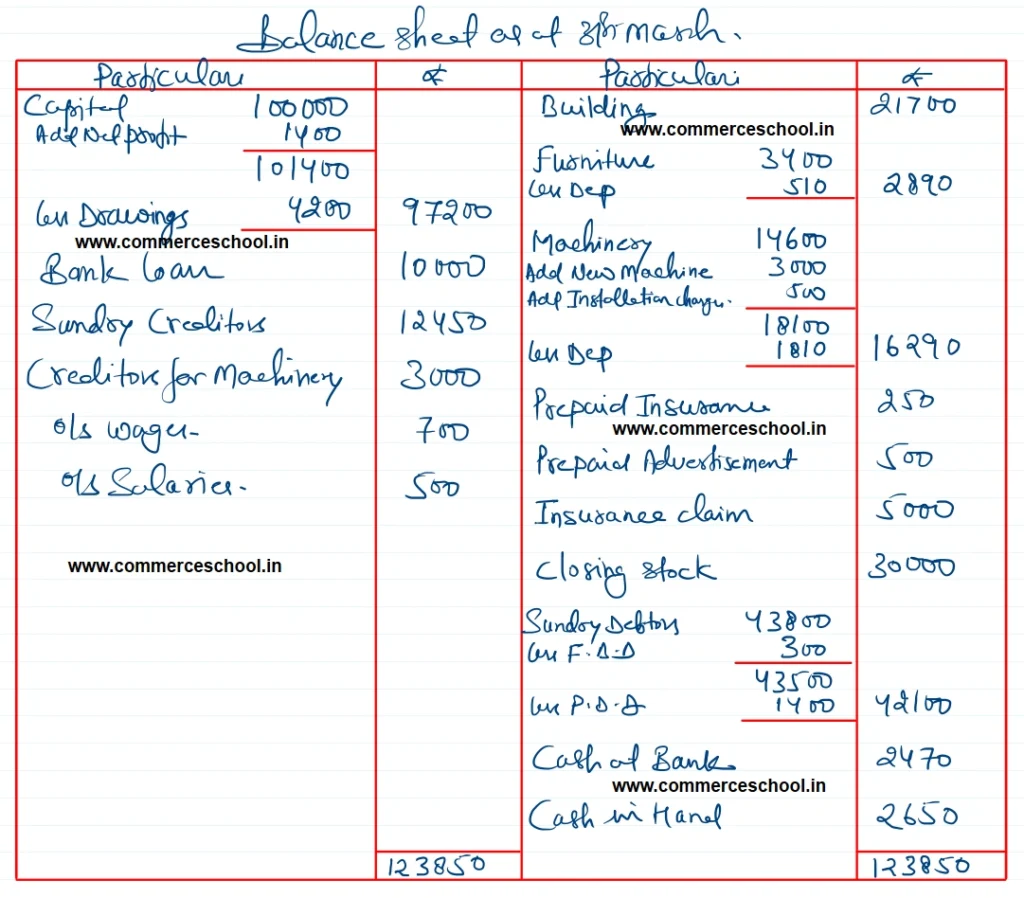 Balance sheet as at 31st March.
Particulars ₹ Particulars ₹
Capital 100000
Add Net profit 1400
101400
Less Drawings 4200 97200
www.commerceschool.in
Bank loan 10000
Sundry Creditors 12450
Creditors for Machinery 3000
o/s wages- 700
o/s Salaries- 500
www.commerceschool.in
123850
Building 21700
www.commerceschool.in
Furniture 3400
Less Dep 510 2890
Machinery 14600
Add New Machine 3000
Add Installation charges. 500
18100
Less Dep 1810 16290
Prepaid Insurance 250
www.commerceschool.in
Prepaid Advertisement 500
Insurance claim 5000
Closing stock 30000
Sundry Debtors 43800
Less F.B.D 300
43500
Less P.D.D 1400 42100
Cash at Bank 2470
www.commerceschool.in
Cash in Hand 2650
123850